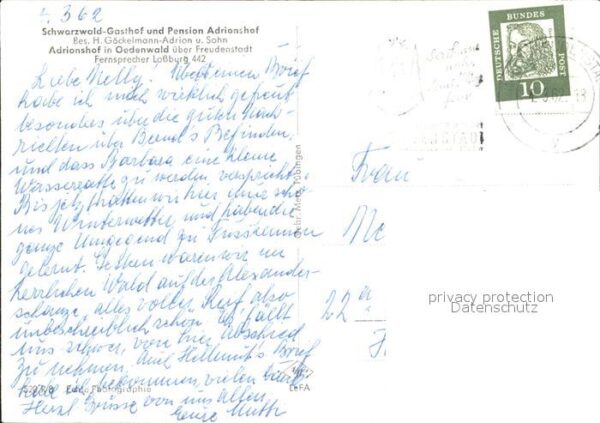 4.3.62
Schwarzwald-Gasthof und Pension Adrianshof
Bes. H. Göckelmann-Adrion u. Sohn
Adrianshof in Oedenwald über Freudenstadt
Fernsprecher Loßburg 442
Liebe Nelly! Über Deinen Brief
habe ich mich wirklich gefreut
besonders über die guten Nach-
richten über Bernd's Befinden,
und dass Barbara eine kleine
Wasserratte zu werden verspricht.
Bis jetzt hatten wir hier nur schö-
nes Winterwetter und haben die
ganze Umgegend zu Fuss kennen
gelernt. Gestern waren wir im
herrlichen Wald auf der Alexander-
schanze, alles voller Reif, also
unbeschreiblich schön. Es fällt
uns schwer, von hier Abschied
zu nehmen. Auch Hellmut's Brief
habe ich bekommen, vielen Dank
Herzl. Grüsse von uns allen,
Eure Mutti
Echte Photographie
LEFA
Gebr. Metz, Tübingen
DEUTSCHE BUNDES POST
10
Frau
Me
22a
privacy protection
Datenschutz